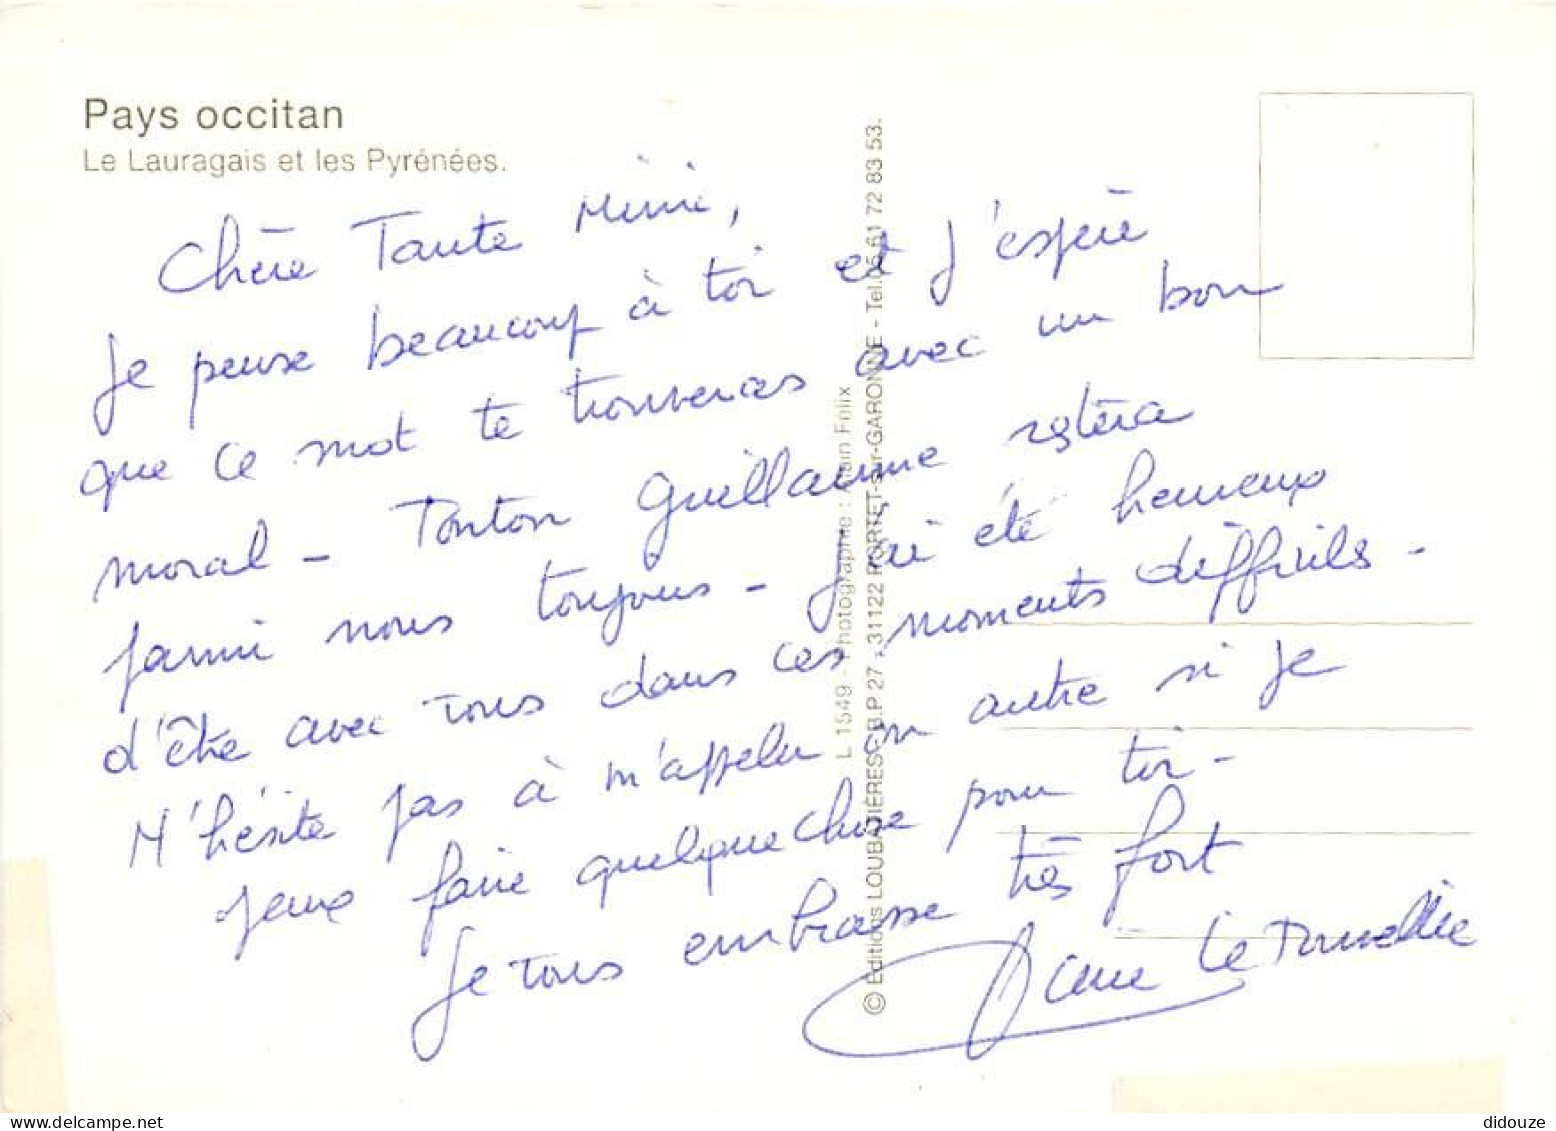 Pays occitan
Le Lauragais et les Pyrénées.
Chère Tante Mimi,
Je pense beaucoup à toi et j'espère
que ce mot te trouveras avec un bon
moral - Tonton Guillaume restera
parmi nous toujours - J'ai été heureux
d'être avec vous dans ces moments difficils -
N'hésite pas à m'appeler en autre si je
peux faire quelque chose pour toi -
Je vous embrasse très fort
L 1549 - Photographie : Alain Félix
© Editions LOUBATIÈRES - B.P 27 - 31122 PORTET-sur-GARONNE - Tel. 05 61 72 83 53.
didouze